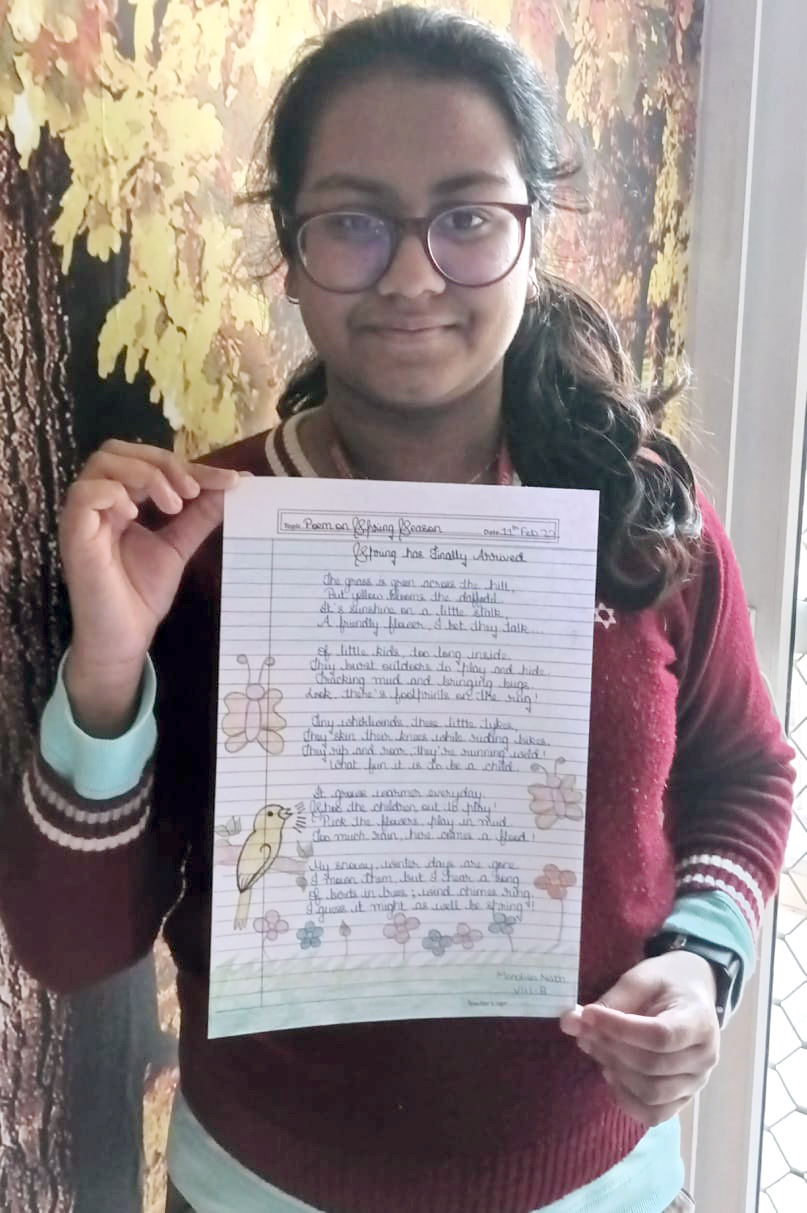 Topic: Poem on Spring Season Date: 11th Feb 22
Spring has Finally Arrived
The grass is green across the hill,
But yellow blooms the daffodil.
It's sunshine on a little stalk,
A friendly flower, I bet they talk...
Of little kids, too long inside.
They burst outdoors to play and hide.
Tracking mud and bringing bugs.
Look, there's footprints on the rug!
Tiny whirlwinds, these little tykes,
They skin their knees while riding bikes.
They rip and roar, they're running wild!
What fun it is to be a child.
It grows warmer everyday.
Shoo the children out to play!
Pick the flowers, play in mud.
Too much rain, here comes a flood!
My snowy winter days are gone
I mourn them, but I hear a song
Of birds in trees; wind chimes ring,
I guess it might as well be spring!!
Nath
VIII-B
Teacher's sign: